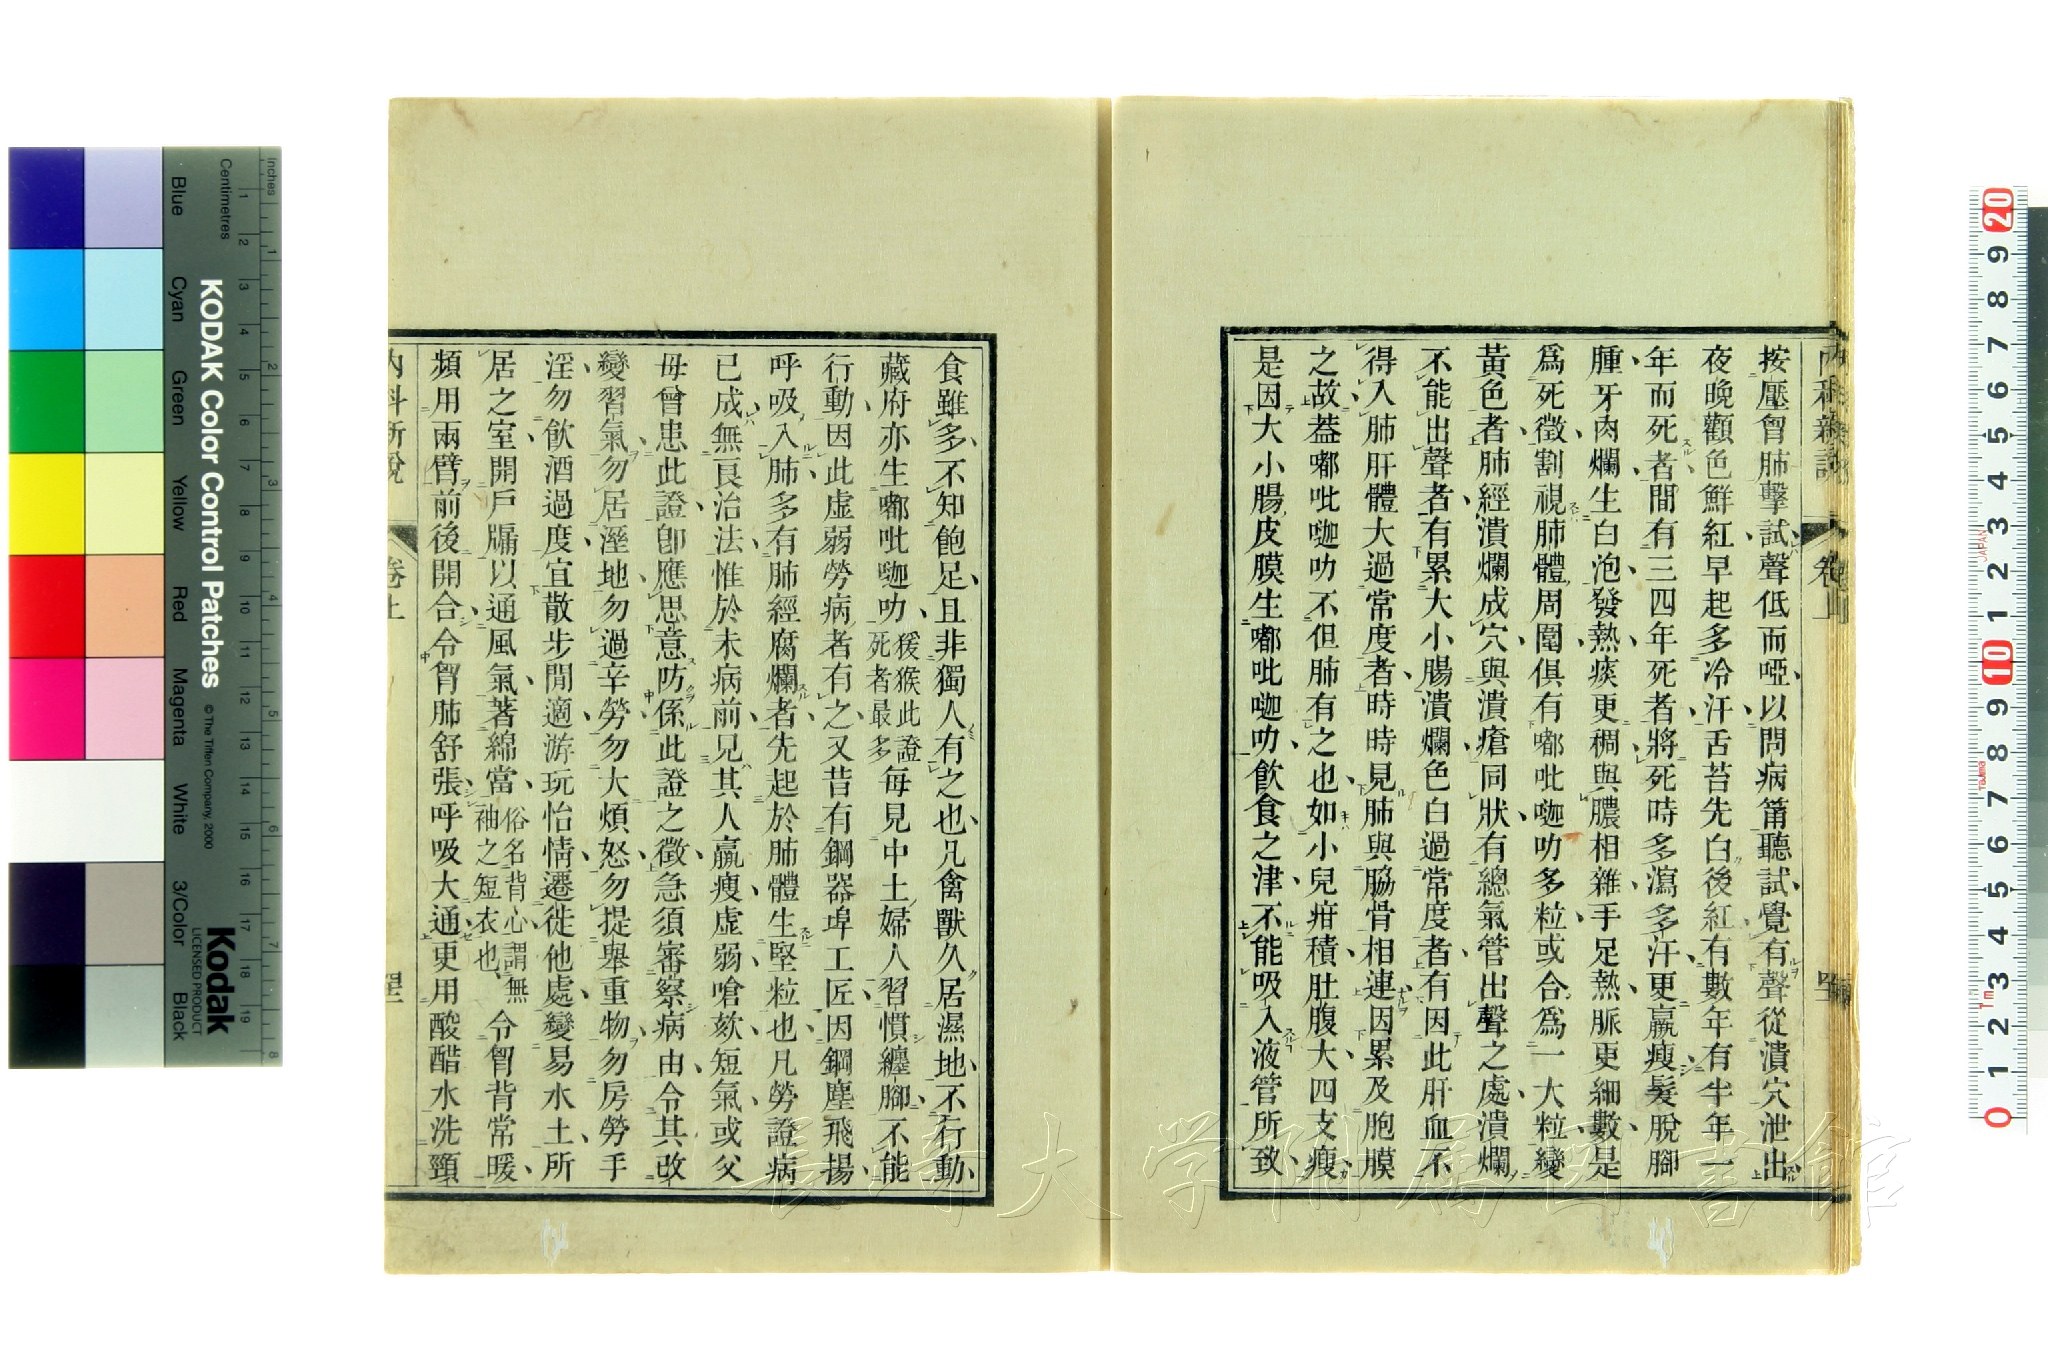 按壓胷肺擊試聲低而啞以問病筩聽試覺有聲從潰穴泄出
夜晚顴色鮮紅早起多冷汗舌苔先白後紅有數年有半年一
年而死者間有三四年死者將死時多瀉多汗更羸瘦髮脫腳
腫牙肉爛生白泡發熱痰更稠與膿相雜手足熱脈更細數是
爲死徵割視肺體周圍俱有嘟吡嗰叻多粒或合爲一大粒變
黃色者肺經潰爛成穴與潰瘡同狀有總氣管出聲之處潰爛
不能出聲者有累大小腸潰爛色白過常度者有因此肝血不
得入肺肝體大過常度者時時見肺與脇骨相連因累及胞膜
之故葢嘟吡嗰叻不但肺有之也如小兒疳積肚腹大四支瘦
是因大小腸皮膜生嘟吡嗰叻飲食之津不能吸入液管所致
食雖多不知飽足且非獨人有之也凡禽獸久居濕地不行動
藏府亦生嘟吡嗰叻猨猴此證死者最多每見中土婦人習慣纏腳不能
行動因此虛弱勞病者有之又昔有鋼器埠工匠因鋼塵飛揚
呼吸入肺多有肺經腐爛者先起於肺體生堅粒也凡勞證病
已成無良治法惟於未病前見其人羸瘦虛弱嗆欬短氣或父
母曾患此證卽應思意防係此證之徵急須審察病由令其改
變習氣勿居溼地勿過辛勞勿大煩怒勿提舉重物勿房勞手
淫勿飲酒過度宜散步閒適游玩怡情遷徙他處變易水土所
居之室開戶牖以通風氣著綿當俗名背心謂無袖之短衣也令胷背常暖
頻用兩臂前後開合令胷肺舒張呼吸大通更用酸醋水洗頸
內科新說
卷上
KODAK Color Control Patches
© The Tiffen Company, 2000
Kodak
LICENSED PRODUCT
Inches
Centimetres
Blue
Cyan
Green
Yellow
Red
Magenta
White
3/Color
Black
長崎大学附属図書館